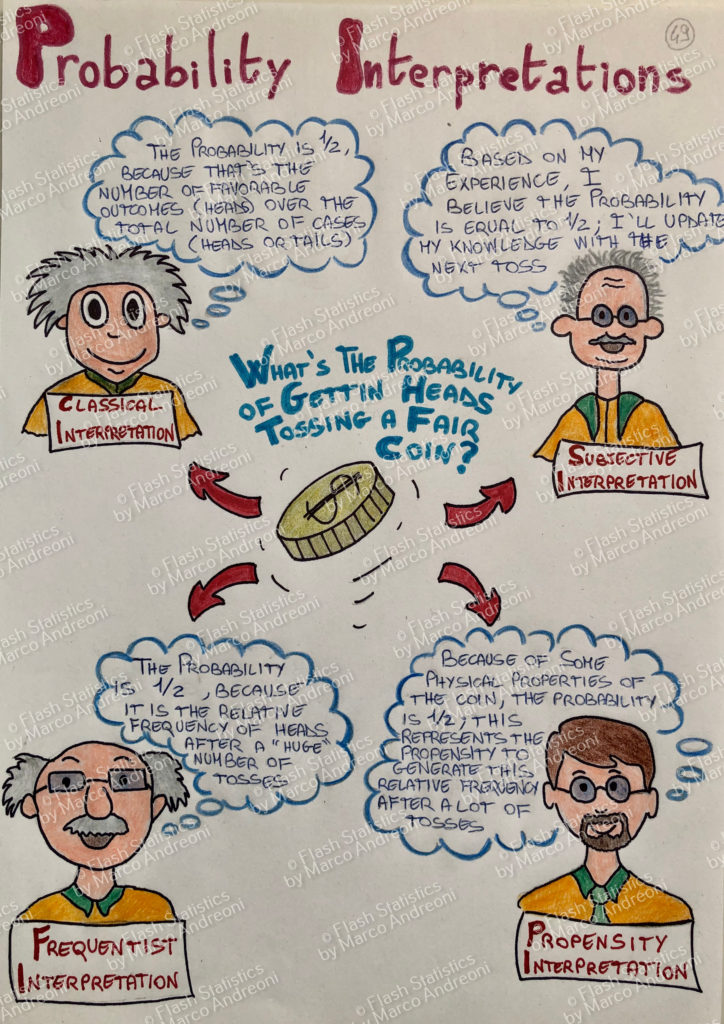 Probability Interpretations
49
THE PROBABILITY IS 1/2,
BECAUSE THAT'S THE
NUMBER OF FAVORABLE
OUTCOMES (HEADS) OVER THE
TOTAL NUMBER OF CASES
(HEADS OR TAILS)
CLASSICAL
INTERPRETATION
BASED ON MY
EXPERIENCE, I
BELIEVE THE PROBABILITY
IS EQUAL TO 1/2; I'LL UPDATE
MY KNOWLEDGE WITH THE
NEXT TOSS
SUBJECTIVE
INTERPRETATION
WHAT'S THE PROBABILITY
OF GETTIN HEADS
TOSSING A FAIR
COIN?
$
THE PROBABILITY
IS 1/2, BECAUSE
IT IS THE RELATIVE
FREQUENCY OF HEADS
AFTER A "HUGE"
NUMBER OF
TOSSES
FREQUENTIST
INTERPRETATION
BECAUSE OF SOME
PHYSICAL PROPERTIES OF
THE COIN, THE PROBABILITY
IS 1/2; THIS
REPRESENTS THE
PROPENSITY TO
GENERATE THIS
RELATIVE FREQUENCY
AFTER A LOT OF
TOSSES
PROPENSITY
INTERPRETATION
© Flash Statistics
by Marco Andreoni